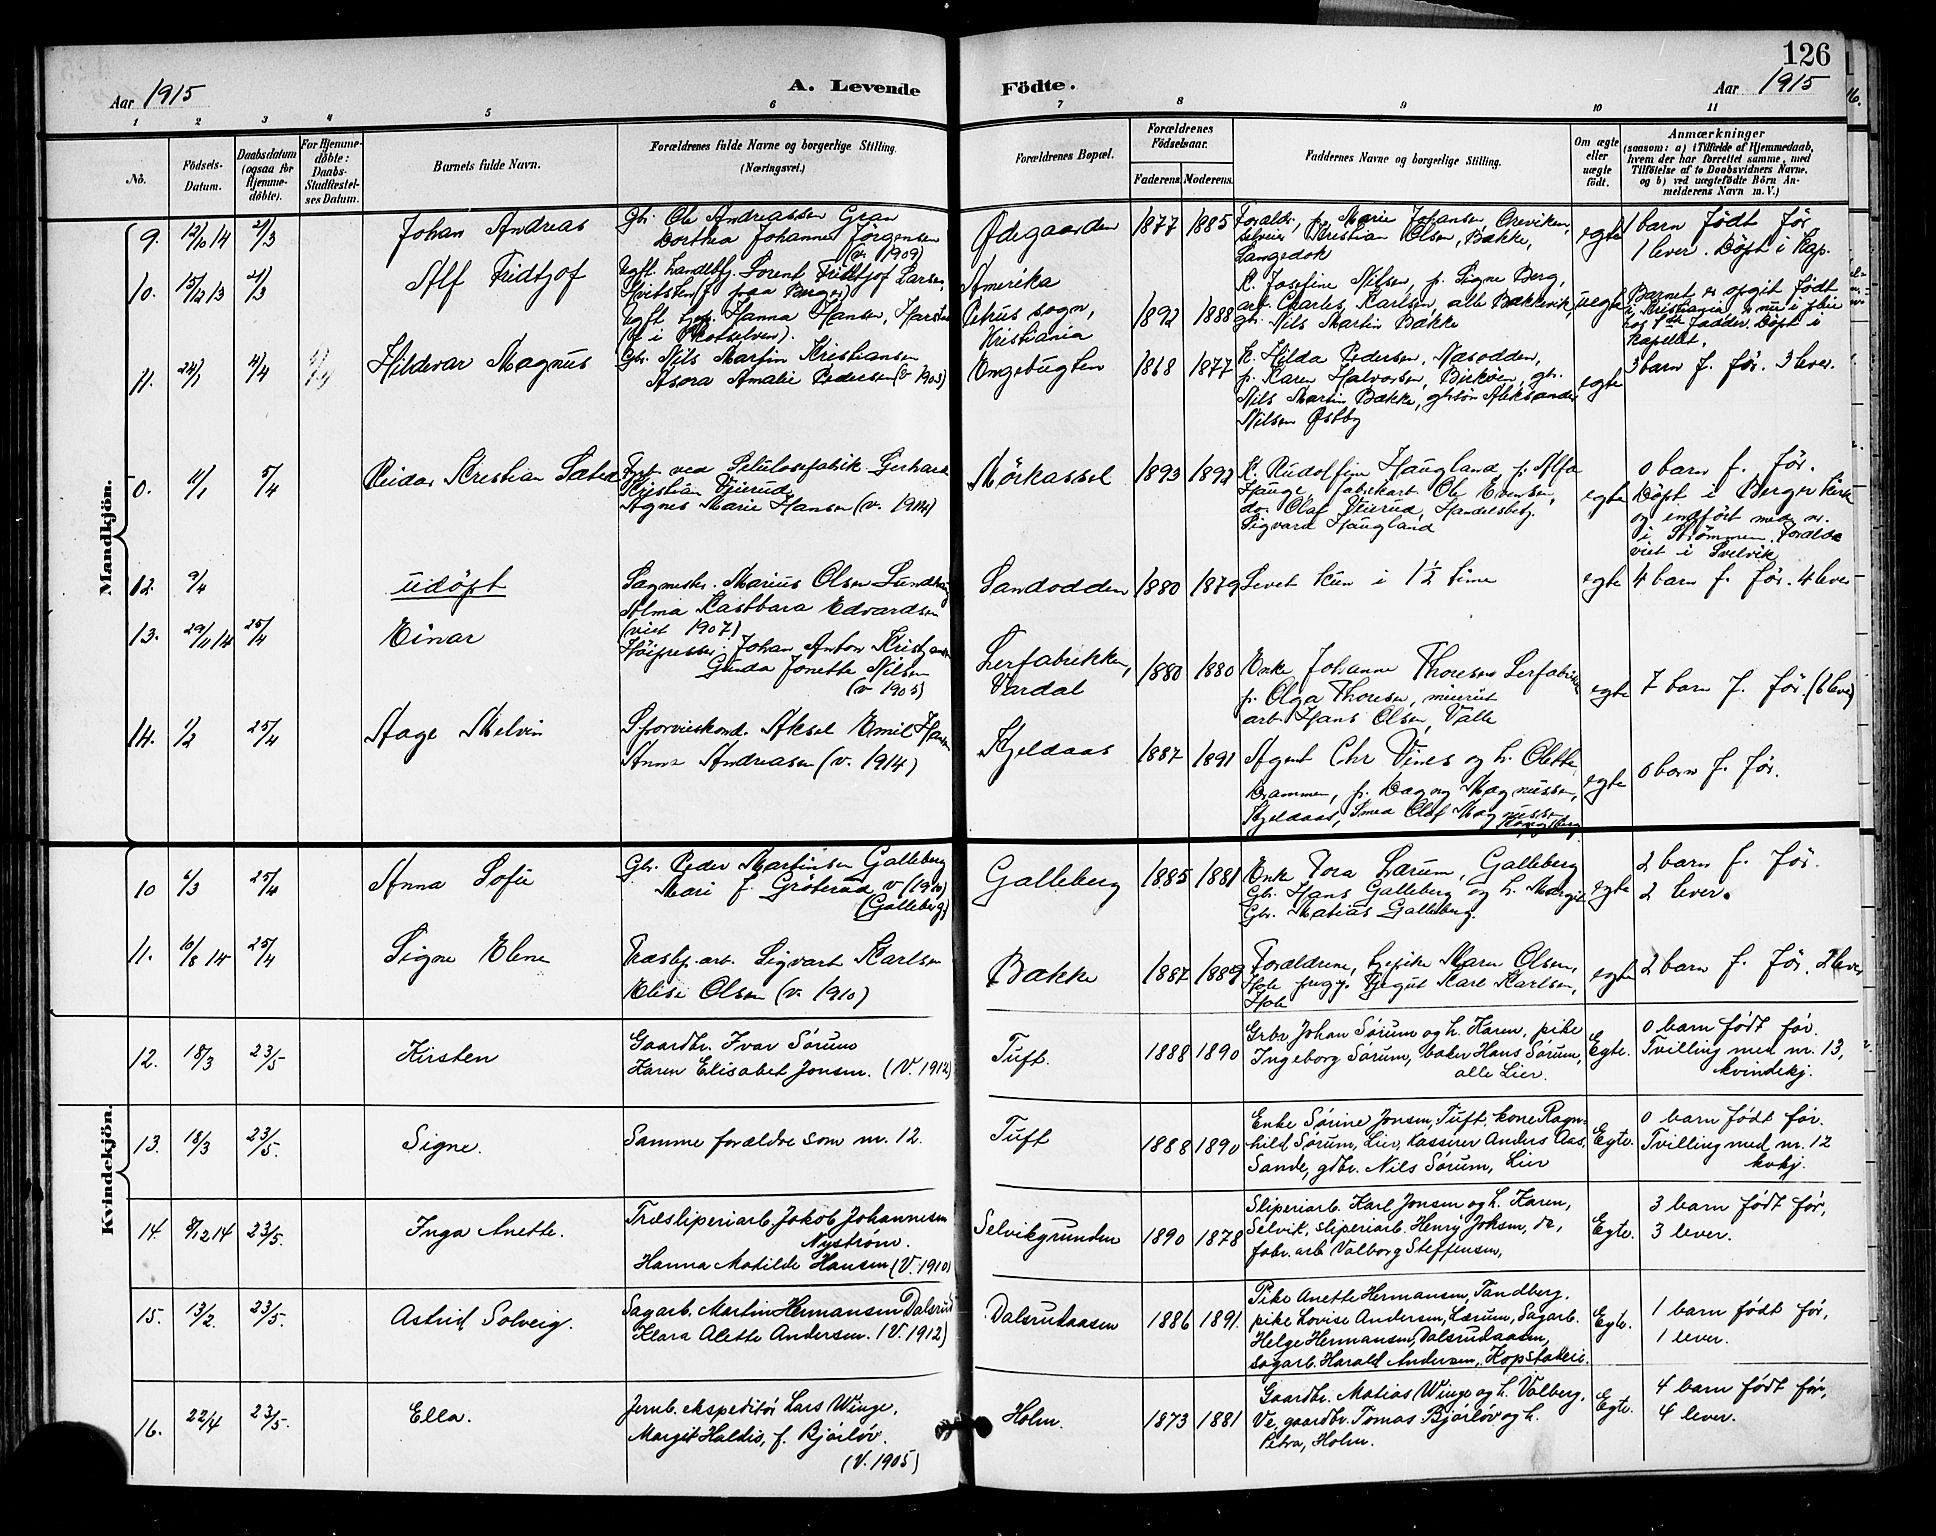 126
Aar 1915
A. Levende
Födte.
Aar 1915
1 2 3 4 5 6 7 8 9 10 11
No.
Födsels-Datum.
Daabsdatum (ogsaa for Hjemme-döbte).
For Hjemme-döbte: Daabs-Stadfæstel-ses Datum.
Barnets fulde Navn.
Forældrenes fulde Navne og borgerlige Stilling.
(Næringsvei.)
Forældrenes Bopæl.
Forældrenes Födselsaar.
Faderens. Moderens.
Faddernes Navne og borgerlige Stilling.
Om ægte eller uægte födt.
Anmærkninger
(saasom: a) i Tilfælde af Hjemmedaab,
hvem der har forrettet samme, med
Tilföielse af to Daabsvidners Navne,
og b) ved uægtefödte Börn An-
melderens Navn m. V.)
Mandkjön.
9. 12/10 14 2/3 Johan Andreas
Gbr. Ole Andreassen Gran
Dorthea Johanne Jörgensen
(v. 1909)
Ødegaarden 1877 1885
Foræld., p. Marie Johansen, Greviken,
selveier Kristian Olsen, Bække,
Langedok
egte
1 barn født før
1 lever. Døpt i Kap.
10. 13/12 13 2/3 Alf Fridtjof
Ugft. Landbfj. Lorent Fridtjof Larsen,
Hvitsten (f. paa Berger)
Ugft. Hanna Hansen,
(f. i Skotselven).
Amerika
Petrus sogn,
Kristiania
1892 1888
K. Josefine Nilsen, p. Signe Berg,
arb. Charles Karlsen, alle Bækkevik,
gb. Nils Martin Bække
uegte
Barnet er opgit født
i Kristiania, er nu i pleie
hos 1ste Fadder. Døpt i
Kapellet.
11. 24/1 4/4 Hildevar Magnus
Gbr. Nils Martin Kristiansen
Asora Amalie Pedersen (v. 1903)
Engebugten 1868 1877
K. Hilda Pedersen, Næsodden,
p. Karen Halvorsen, Birkøen, gb.
Nils Martin Bække, gbrsøn Aleksander
Nilsen Østby
egte
3 barn f. før. 3 lever.
0. 11/1 5/4 Reidar Kristian Sater
Fyrb. ved Selulosefabrik Gerhard
Kristian Veierud
Agnes Marie Hansen (v. 1914)
Mörkassel 1893 1892
K. Rudolfine Haugland, p. Alfa
Hauge, fabrikarb. Ole Evensen,
do. Olaf Veierud, Handelsbetj.
Sigvard Haugland
egte
0 barn f. før.
Døpt i Berger kirke
og indført med nr.
i Strømmen. Forældre
viet i Svelvik
12. 9/4 udöpt
Sagmester Marius Olsen Lundberg
Alma Kastbara Edvardsen
(viet 1907)
Sandodden 1880 1879
Levet kun i 1 1/2 time
egte
4 barn f. før. 4 lever
13. 29/11 14 25/4 Einar
Höipresser Johan Anton Kristiansen
Gunda Jonette Nilsen
(v 1905)
Lerfabrikken,
Vardal
1880 1880
Enke Johanne Thoresen Lerfabrikken
p. Olga Thoresen,
arb. Hans Olsen, Valle
egte
7 barn f. før. (6 lever)
14. 1/2 25/4 Aage Melvin
Sporveiskond. Aksel Emil Hansen
Anna Andreasen (v. 1914)
Kjeldaas 1887 1891
Agent Chr Vines og h. Olette
Drammen, p. Dagny Magnussen,
Kjeldaas, Smed Olaf Magnussen
Kongsberg
egte
0 barn f. før.
Kvindekjön.
10 6/3 25/4 Anna Sofie
Gbr. Peder Martinsen Galleberg
Mari f. Gröterud v (1910)
(Galleberg)
Galleberg 1885 1881
Enke Tora Lærum, Galleberg
Gbr. Hans Galleberg og h. Margit
Gbr. Matias Galleberg.
egte
2 barn f. før.
2 lever.
11. 10/8 14 25/4 Signe Elene
Træsbj. arb. Sigvart Karlsen
Elise Olsen (v. 1910)
Bække 1887 1889
Forældrene, tj.pike Maren Olsen,
Hole tjegut Karl Karlsen,
Hole
egte
2 barn f. før. 2 lever
12. 18/3 23/5 Kirsten
Gaardbr. Ivar Sørum
Karen Elisabet Jonsen. (V. 1912)
Tuft. 1888 1890
Grbr Johan Sørum og h. Karen, pike
Ingeborg Sørum, baker Hans Sørum,
alle Lier.
Egte.
0 barn født før.
Tvilling med nr. 13,
kvindekj.
13. 18/3 23/5. Signe.
Samme forældre som nr. 12.
Tuft 1888 1890
Enke Sørine Jonsen, Tuft, kone Ragn-
hild Sørum, Lier, kasserer Anders Aas,
Sande, gdbr. Nils Sørum, Lier
Egte.
0 barn født før.
Tvilling med nr. 12
kvkj.
14. 8/12 14 23/5. Inga Anette.
Træsliperiarb. Jakob Johannesen
Nystrøm.
Hanna Matilde Hansen (V. 1910)
Selvikgrunden 1890 1878
Sliperiarb. Karl Jonsen og h. Karen,
Selvik, sliperiarb. Henry Johsen, do,
fabr. arb Valborg Steffensen,
Egte.
3 barn født før,
3 lever.
15. 13/2. 23/5. Astrid Solveig.
Sagarb. Martin Hermansen Dalsrud
Klara Alette Andersen. (V. 1912)
Dalsrudaasen 1886 1891.
Pike Anette Hermansen, Tandberg,
pike Lovise Andersen, Lærum, Sagarb.
Helge Hermansen, Dalsrudaasen,
sagarb. Harald Andersen, Kopstaderie.
Egte.
1 barn født før,
1 lever.
16. 22/4 23/5. Ella.
Jernb. ekspeditør Lars Winge,
Margit Haldis, f. Bjørløv.
(V. 1905)
Holm. 1873 1881
Gaardbr. Matias Winge og h. Valberg,
Ve, gaardbr. Tomas Bjørløv og h.
Petra, Holm.
Egte.
4 barn født før,
4 lever.